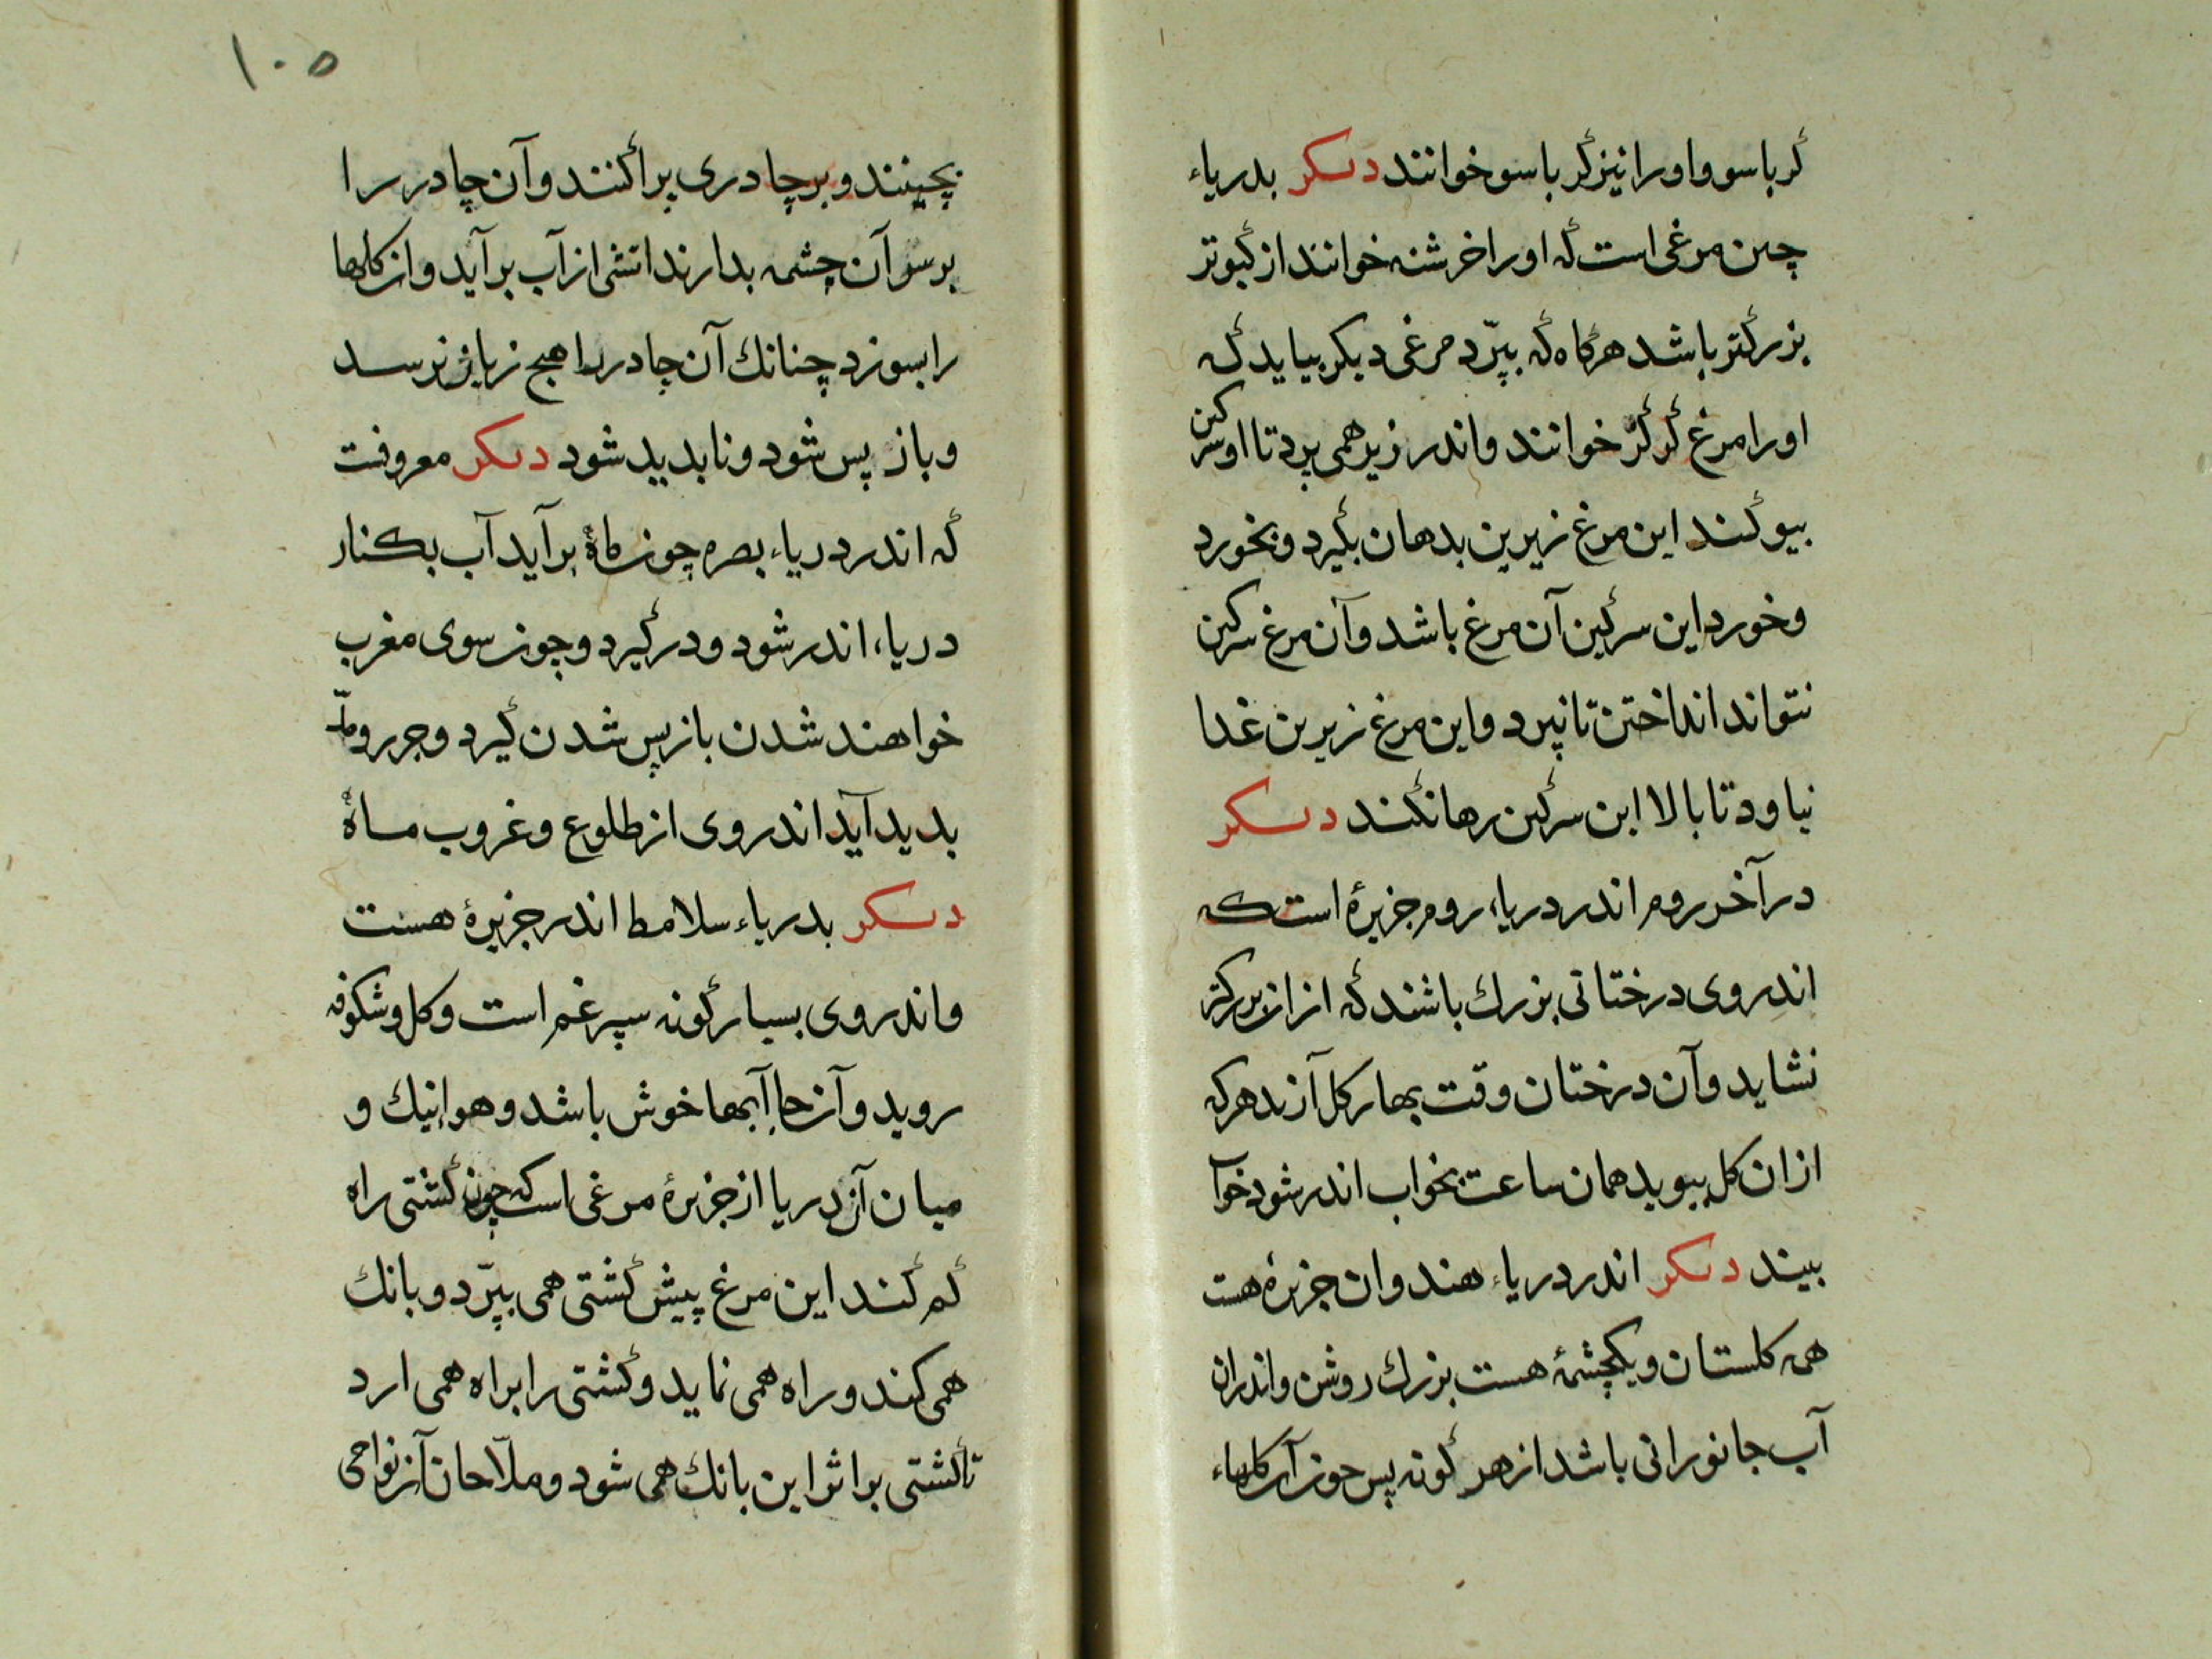 کرباسو و اورا نیز کرباسو خوانند دیکر بدریاء
چین مرغی است که اورا خرشنه خوانند از کبوتر
بزرکتر باشد هرکاه که بپرّد مرغی دیکر بیاید که
اورا مرغ کرکر خوانند و اندر زیر همی پرد تا او سرکین
بیوکند این مرغ زیرین بدهان بکیرد و بخورد
و خورد این سرکین آن مرغ باشد و آن مرغ سرکین
نتواند انداختن تا نپرد و این مرغ زیرین غدا
نیاود تا بالا این سرکین رها نکند دیکر
در آخر روم اندر دریاء روم جزیرهٔ است که
اندر وی درختانی بزرك باشند که از ان بزرکتر
نشاید و آن درختان وقت بهار کل آرند هر که
از ان کل ببوید همان ساعت بخواب اندر شود خوا
بیند دیکر اندر دریاء هندوان جزیرهٔ هست
همه کلستان و یکچشمهٔ هست بزرك روشن و اندران
آب جانورانی باشد از هر کونه پس چون آن کلهاء
۱۰۵
بچینند و بر چادری پراکنند و آن چادر را
بر سو آن چشمه بدارند اتشی از آب بر آید و از کلها
را بسوزد چنانك آن چادر را هیچ زیان نرسد
و باز پس شود و نابدید شود دیکر معروفت
که اندر دریاء بصره چون ماهٔ برآید آب بکنار
دریاء اندر شود و در کیرد و چون سوی مغرب
خواهند شدن باز پس شدن کیرد و جرر و مدّ
بدید آید اندر وی از طلوع و غروب ماهٔ
دیکر بدریاء سلامط اندر جزیرهٔ هست
و اندر وی بسیار کونه سپرغم است و کل و شکوفه
روید و آنجا آبها خوش باشد و هوا نیك و
میان آن دریا از جزیرهٔ مرغی است که چون کشتی راه
کم کند این مرغ پیش کشتی همی بپرّد و بانك
همی کند و راه همی نماید و کشتی را براه همی ارد
تا کشتی بر اثر این بانك همی شود و ملّاحان آن نواحی